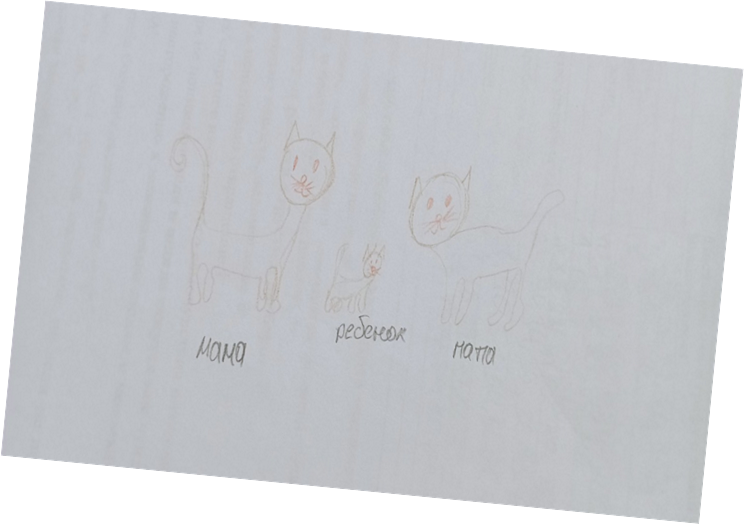 мама
ребенок
папа